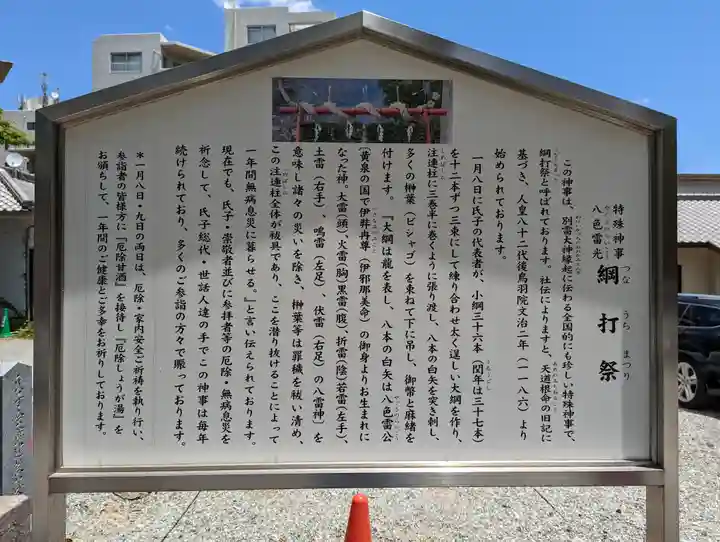 特殊神事
八色雷光
綱打祭
つな うち まつり
この神事は、別雷大神縁起に伝わる全国的にも珍しい特殊神事で、
綱打祭と呼ばれております。社伝によりますと、天道根命の日記に
基づき、人皇八十二代後鳥羽院文治二年（一一八六）より
始められております。
一月八日に氏子の代表者が、小綱三十六本（閏年は三十七本）
を十二本ずつ三束にして練り合わせ太く逞しい大綱を作り、
注連柱に三巻半に巻くように張り渡し、八本の白矢を突き刺し、
多くの榊葉（ビシャゴ）を束ねて下に吊し、御幣と麻緒を
付けます。『大綱は龍を表し、八本の白矢は八色雷公
（黄泉の国で伊弉冉尊（伊邪那美命）の御身よりお生まれに
なった神。大雷（頭）、火雷（胸）黒雷（腹）、折雷（陰）若雷（左手）、
土雷（右手）、鳴雷（左足）、伏雷（右足）の八雷神）を
意味し諸々の災いを除き、榊葉等は罪穢を祓い清め、
この注連柱全体が祓具であり、ここを潜り抜けることによって
一年間無病息災に暮らせる。』と言い伝えられております。
現在でも、氏子・崇敬者並びに参拝者等の厄除・無病息災を
祈念して、氏子総代・世話人達の手でこの神事は毎年
続けられており、多くのご参詣の方々で賑っております。
＊一月八日・九日の両日は、厄除・家内安全ご祈祷を執り行い、
参詣者の皆様方に『厄除甘酒』を接待し『厄除しょうが湯』を
お頒ちして、一年間のご健康とご多幸をお祈りしております。